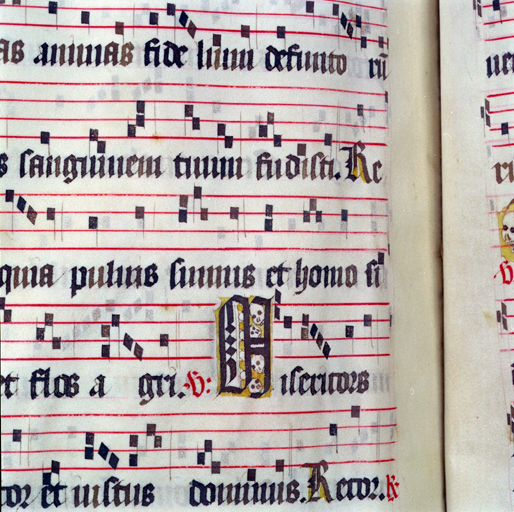 as animas fide lium defuncto rū
s sanguinem tuum fudisti. Re
quia puluis sumus et homo si
et flos a gri. ℣: Misericors
cor et iustus dominus. Recor. ℟